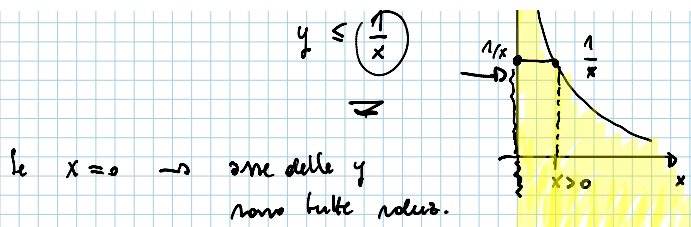 y ≤ 1/x
1/x
1/x
Se x = 0 → asse delle y
sono tutte soluz.
x > 0
x